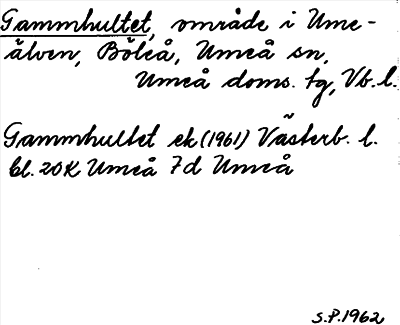 Gammhultet, område i Ume-
älven, Böleå, Umeå sn,
Umeå doms. tg, Vb. l.
Gammhultet ek (1961) Västerb. l.
bl. 20K Umeå 7d Umeå
S.P. 1962